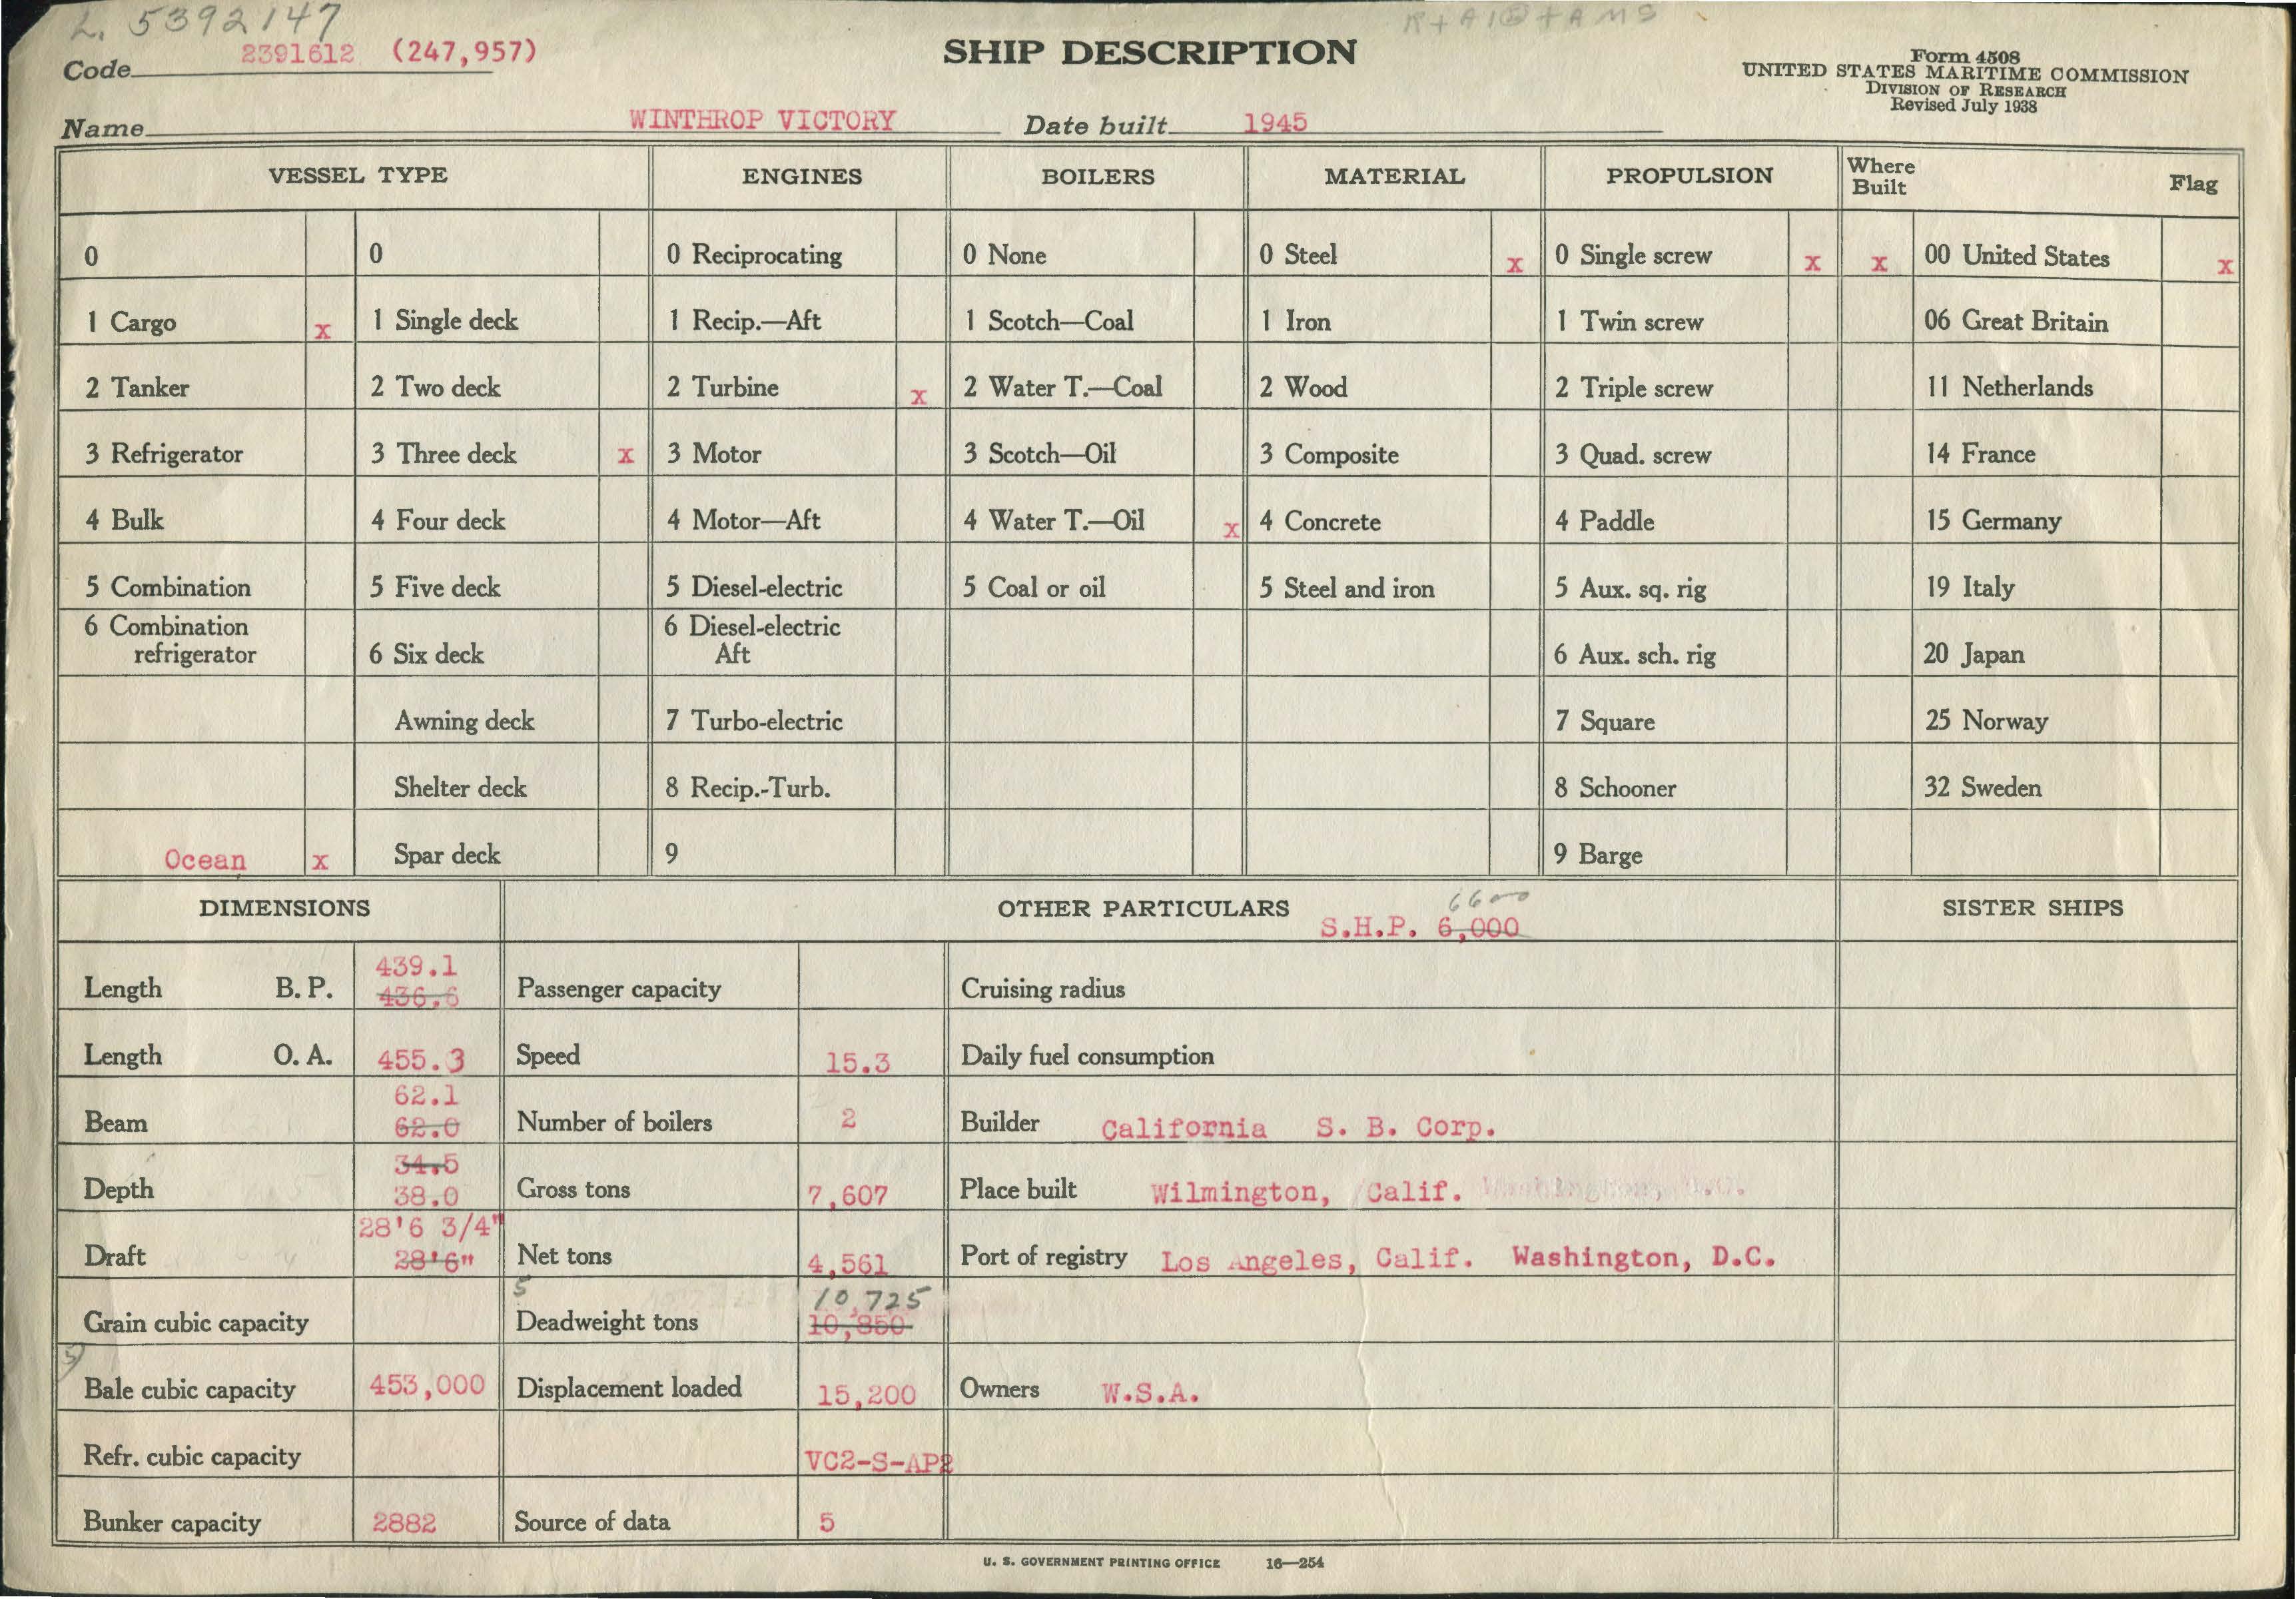 L. 5392147
Code 2391612 (247,957)
SHIP DESCRIPTION
Form 4508
UNITED STATES MARITIME COMMISSION
DIVISION OF RESEARCH
Revised July 1938
Name WINTHROP VICTORY Date built 1945
VESSEL TYPE ENGINES BOILERS MATERIAL PROPULSION Where Built Flag
0 0 0 Reciprocating 0 None 0 Steel x 0 Single screw x x 00 United States x
1 Cargo x 1 Single deck 1 Recip.—Aft 1 Scotch—Coal 1 Iron 1 Twin screw 06 Great Britain
2 Tanker 2 Two deck 2 Turbine x 2 Water T.—Coal 2 Wood 2 Triple screw 11 Netherlands
3 Refrigerator 3 Three deck x 3 Motor 3 Scotch—Oil 3 Composite 3 Quad. screw 14 France
4 Bulk 4 Four deck 4 Motor—Aft 4 Water T.—Oil x 4 Concrete 4 Paddle 15 Germany
5 Combination 5 Five deck 5 Diesel-electric 5 Coal or oil 5 Steel and iron 5 Aux. sq. rig 19 Italy
6 Combination refrigerator 6 Six deck 6 Diesel-electric Aft 6 Aux. sch. rig 20 Japan
Awning deck 7 Turbo-electric 7 Square 25 Norway
Shelter deck 8 Recip.-Turb. 8 Schooner 32 Sweden
Ocean x Spar deck 9 9 Barge
DIMENSIONS OTHER PARTICULARS SISTER SHIPS
6600
S.H.P. 6,000
439.1
Length B. P. 436.6 Passenger capacity Cruising radius
Length O. A. 455.3 Speed 15.3 Daily fuel consumption
62.1
Beam 62.0 Number of boilers 2 Builder California S. B. Corp.
34.5
Depth 38.0 Gross tons 7,607 Place built Wilmington, Calif.
28'6 3/4"
Draft 28'6" Net tons 4,561 Port of registry Los Angeles, Calif. Washington, D.C.
5 10,725
Grain cubic capacity Deadweight tons 10,850
5
Bale cubic capacity 453,000 Displacement loaded 15,200 Owners W.S.A.
Refr. cubic capacity VC2-S-AP2
Bunker capacity 2882 Source of data 5
U. S. GOVERNMENT PRINTING OFFICE 16—254